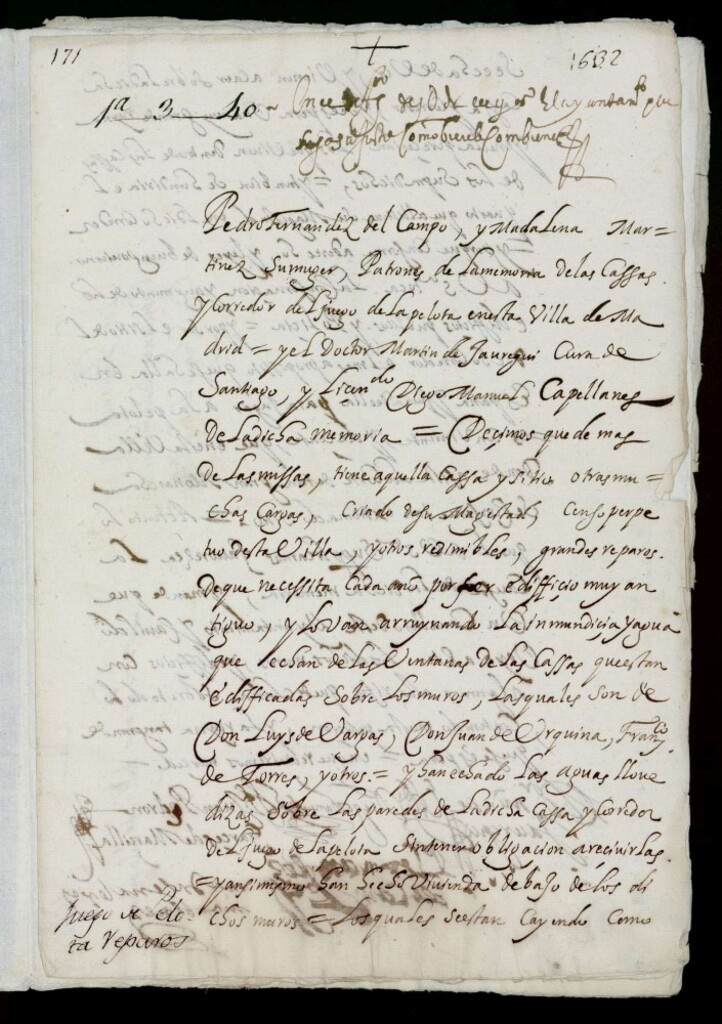 171
1632
1ª 3 40
Pedro Fernandez del Campo, y Madalena Mar=
tinez Sumuger, Patrones de Lamemoria delas Cassas.
y Corredor deLjuego deLapelota enesta Villa de Ma
drid = yeL Doctor Martin de Jauregui Cura de
Santiago, y Licendo Diego Manuel Capellanes
deLadicha memoria = Decimos que de mas
deLasmissas, tiene aquella Cassa y sitio otras mu=
chas Cargas, Criado desu Magestad, censo perpe
tuo desta Villa, yotros redimibles, grandes reparos.
Deque necessita Cada año por ser edifficio muy an
tiguo, y Lo van arruynando La inmundicia yagua
que echan de las Ventanas de Las Cassas que estan
edifficadas sobre Los muros, Lasquales son de
Don Luys de Vargas, Don Juan de Urquina, Franco
de Torres, yotros. = y han echado Las aguas llove
dizas sobre Las paredes de Ladicha Cassa y Corredor
deLjuego deLapelota sintener obligacion a recivirlas.
= yansimismo han hecho Vivienda debajo de los di
chos muros = Losquales seestan Cayendo Como
Juego de Pelo
ta reparos